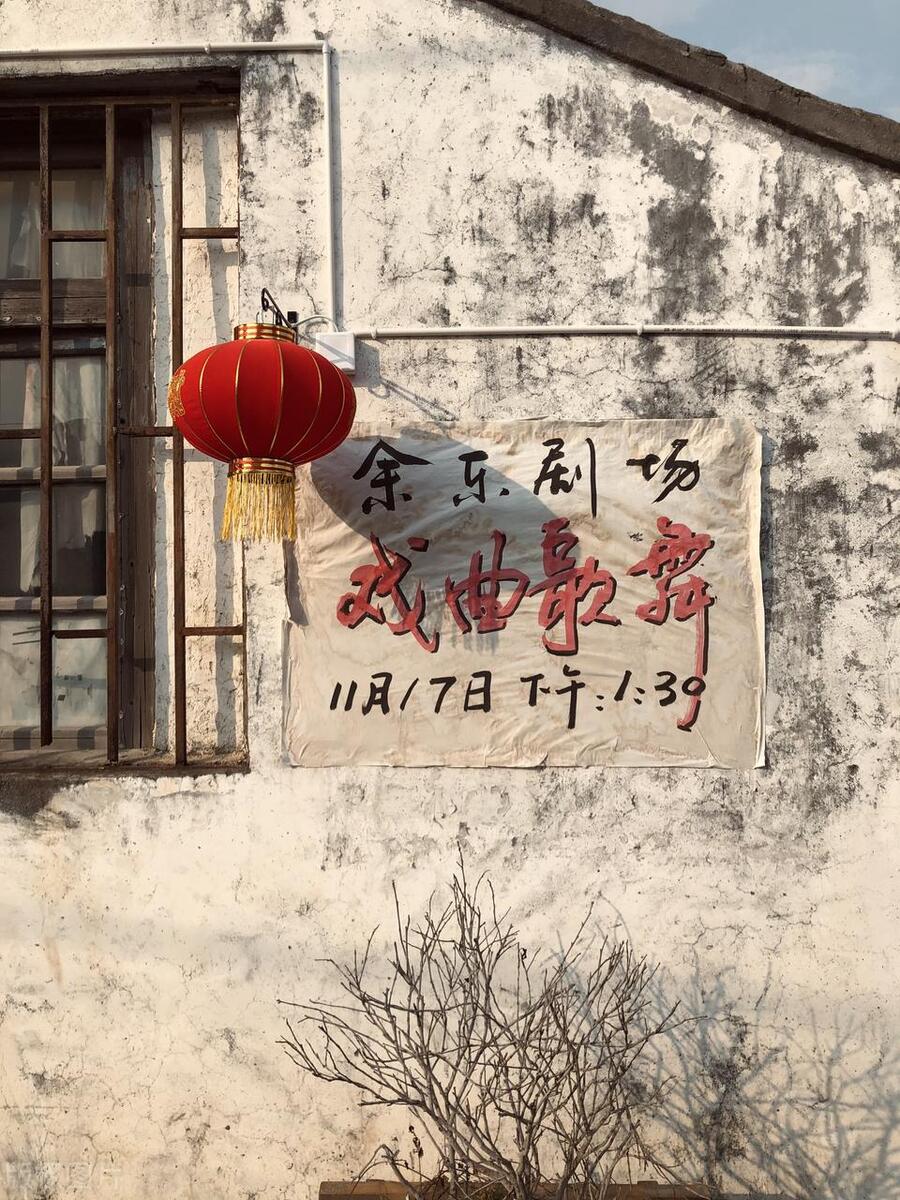 余东剧场
戏曲歌舞
11月17日 下午:1:30